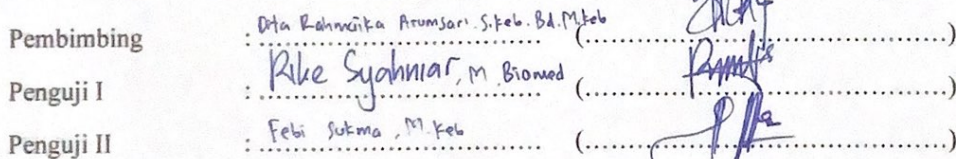 Pembimbing : Dita Rahmaika Arumsari. S.Keb. Bd. M.Keb (....................)
Penguji I : Rike Syahniar, M Biomed (....................)
Penguji II : Febi Sukma, M.Keb (....................)